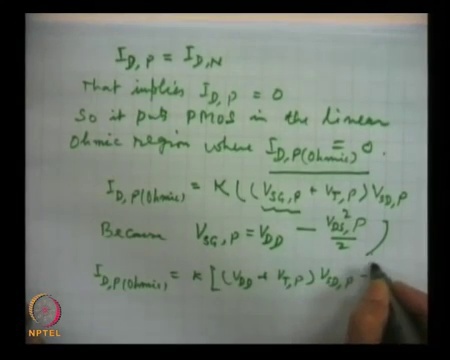 I_D,P = I_D,N
That implies I_D,P = 0
So it puts PMOS in the linear
Ohmic region where I_D,P(Ohmic) = 0.
I_D,P(Ohmic) = K((V_SG,P + V_T,P) V_SD,P
Because V_SG,P = V_DD - V_DS,P^2/2)
I_D,P(Ohmic) = K[(V_DD + V_T,P) V_SD,P -
NPTEL